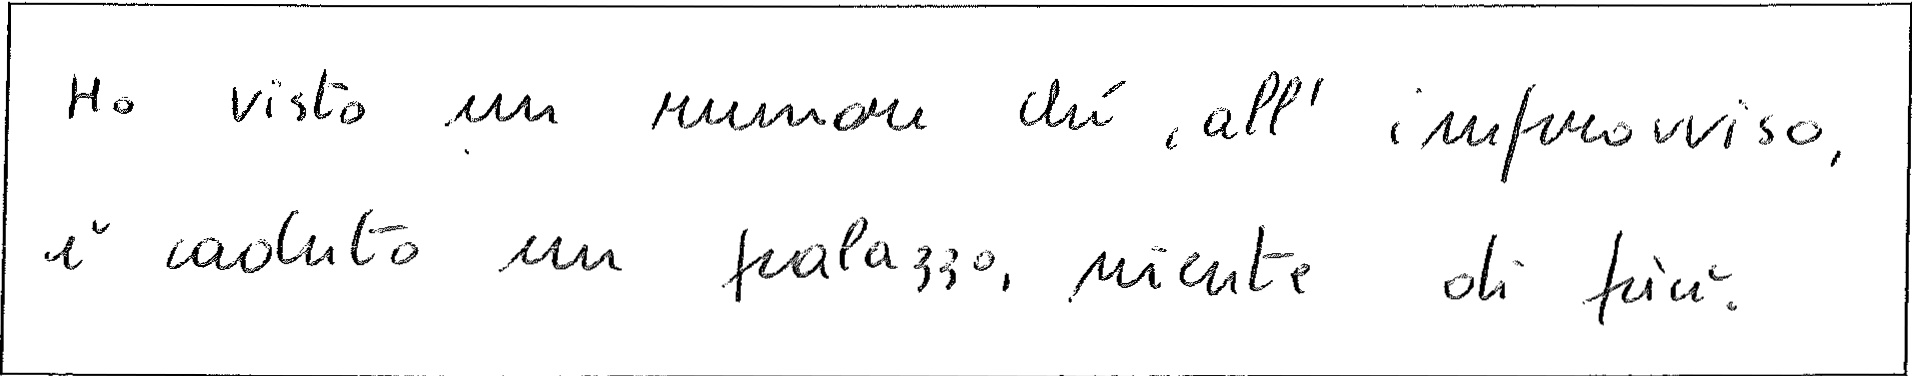 Ho visto un rumore ché, all' improvviso,
è caduto un palazzo, niente di più.